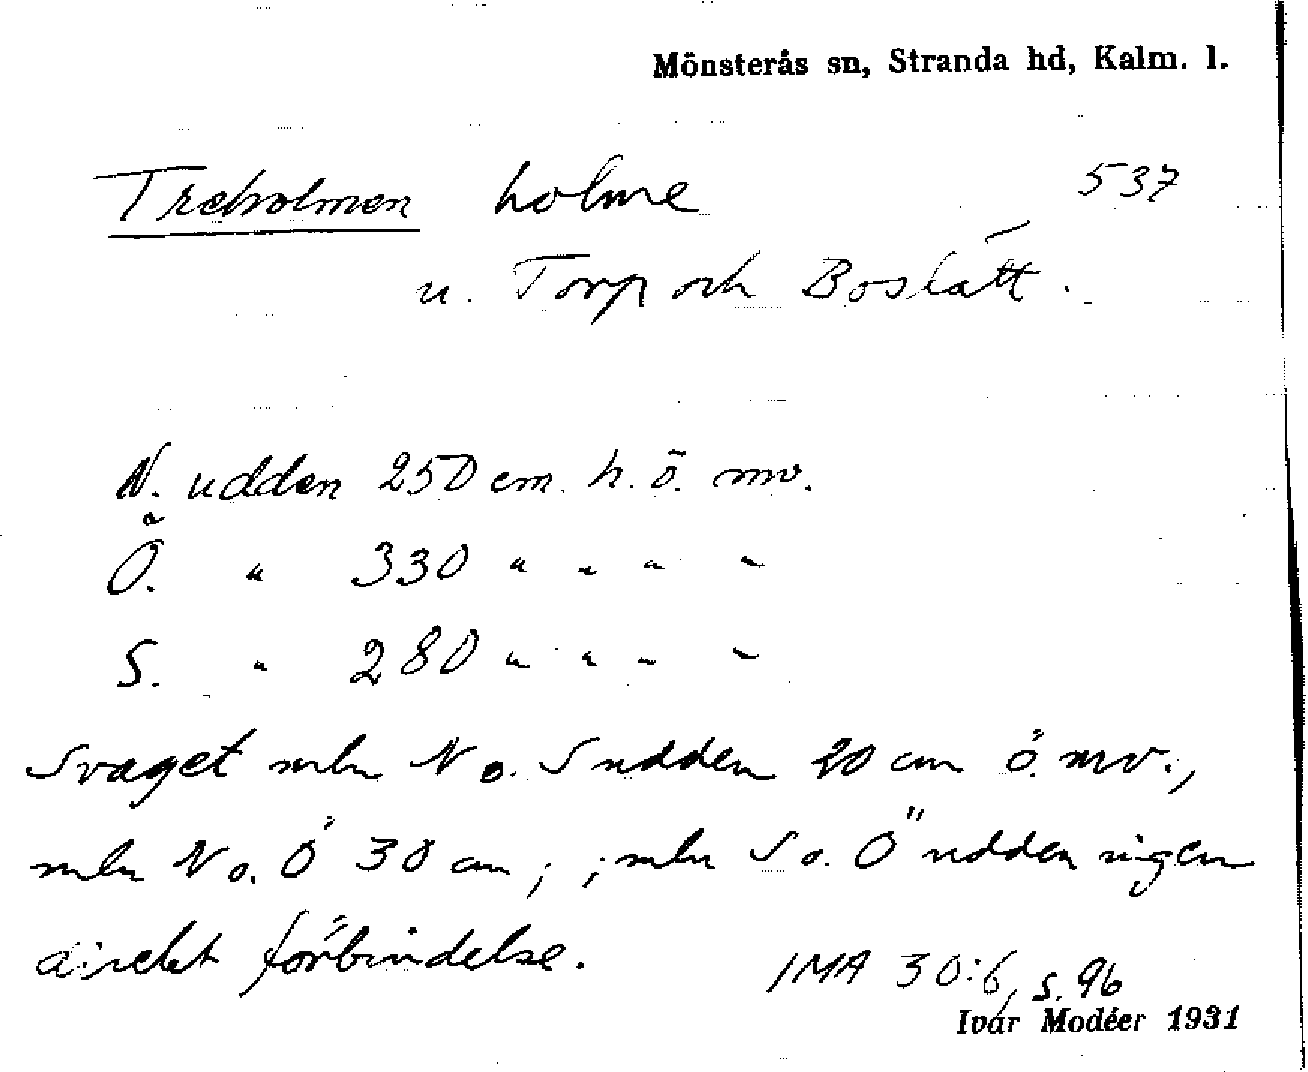 Mönsterås sn, Stranda hd, Kalm. l.
Treholmen holme 537
u. Torp och Boslätt.
N. udden 250 cm. h. ö. mv.
Ö. " 330 " " " "
S. " 280 " " " "
Svaget mln N o. S udden 20 cm ö. mv.,
mln N o. Ö 30 cm; ; mln S o. Ö udden ingen
direkt förbindelse.
IMA 30:6, s. 96
Ivar Modéer 1931